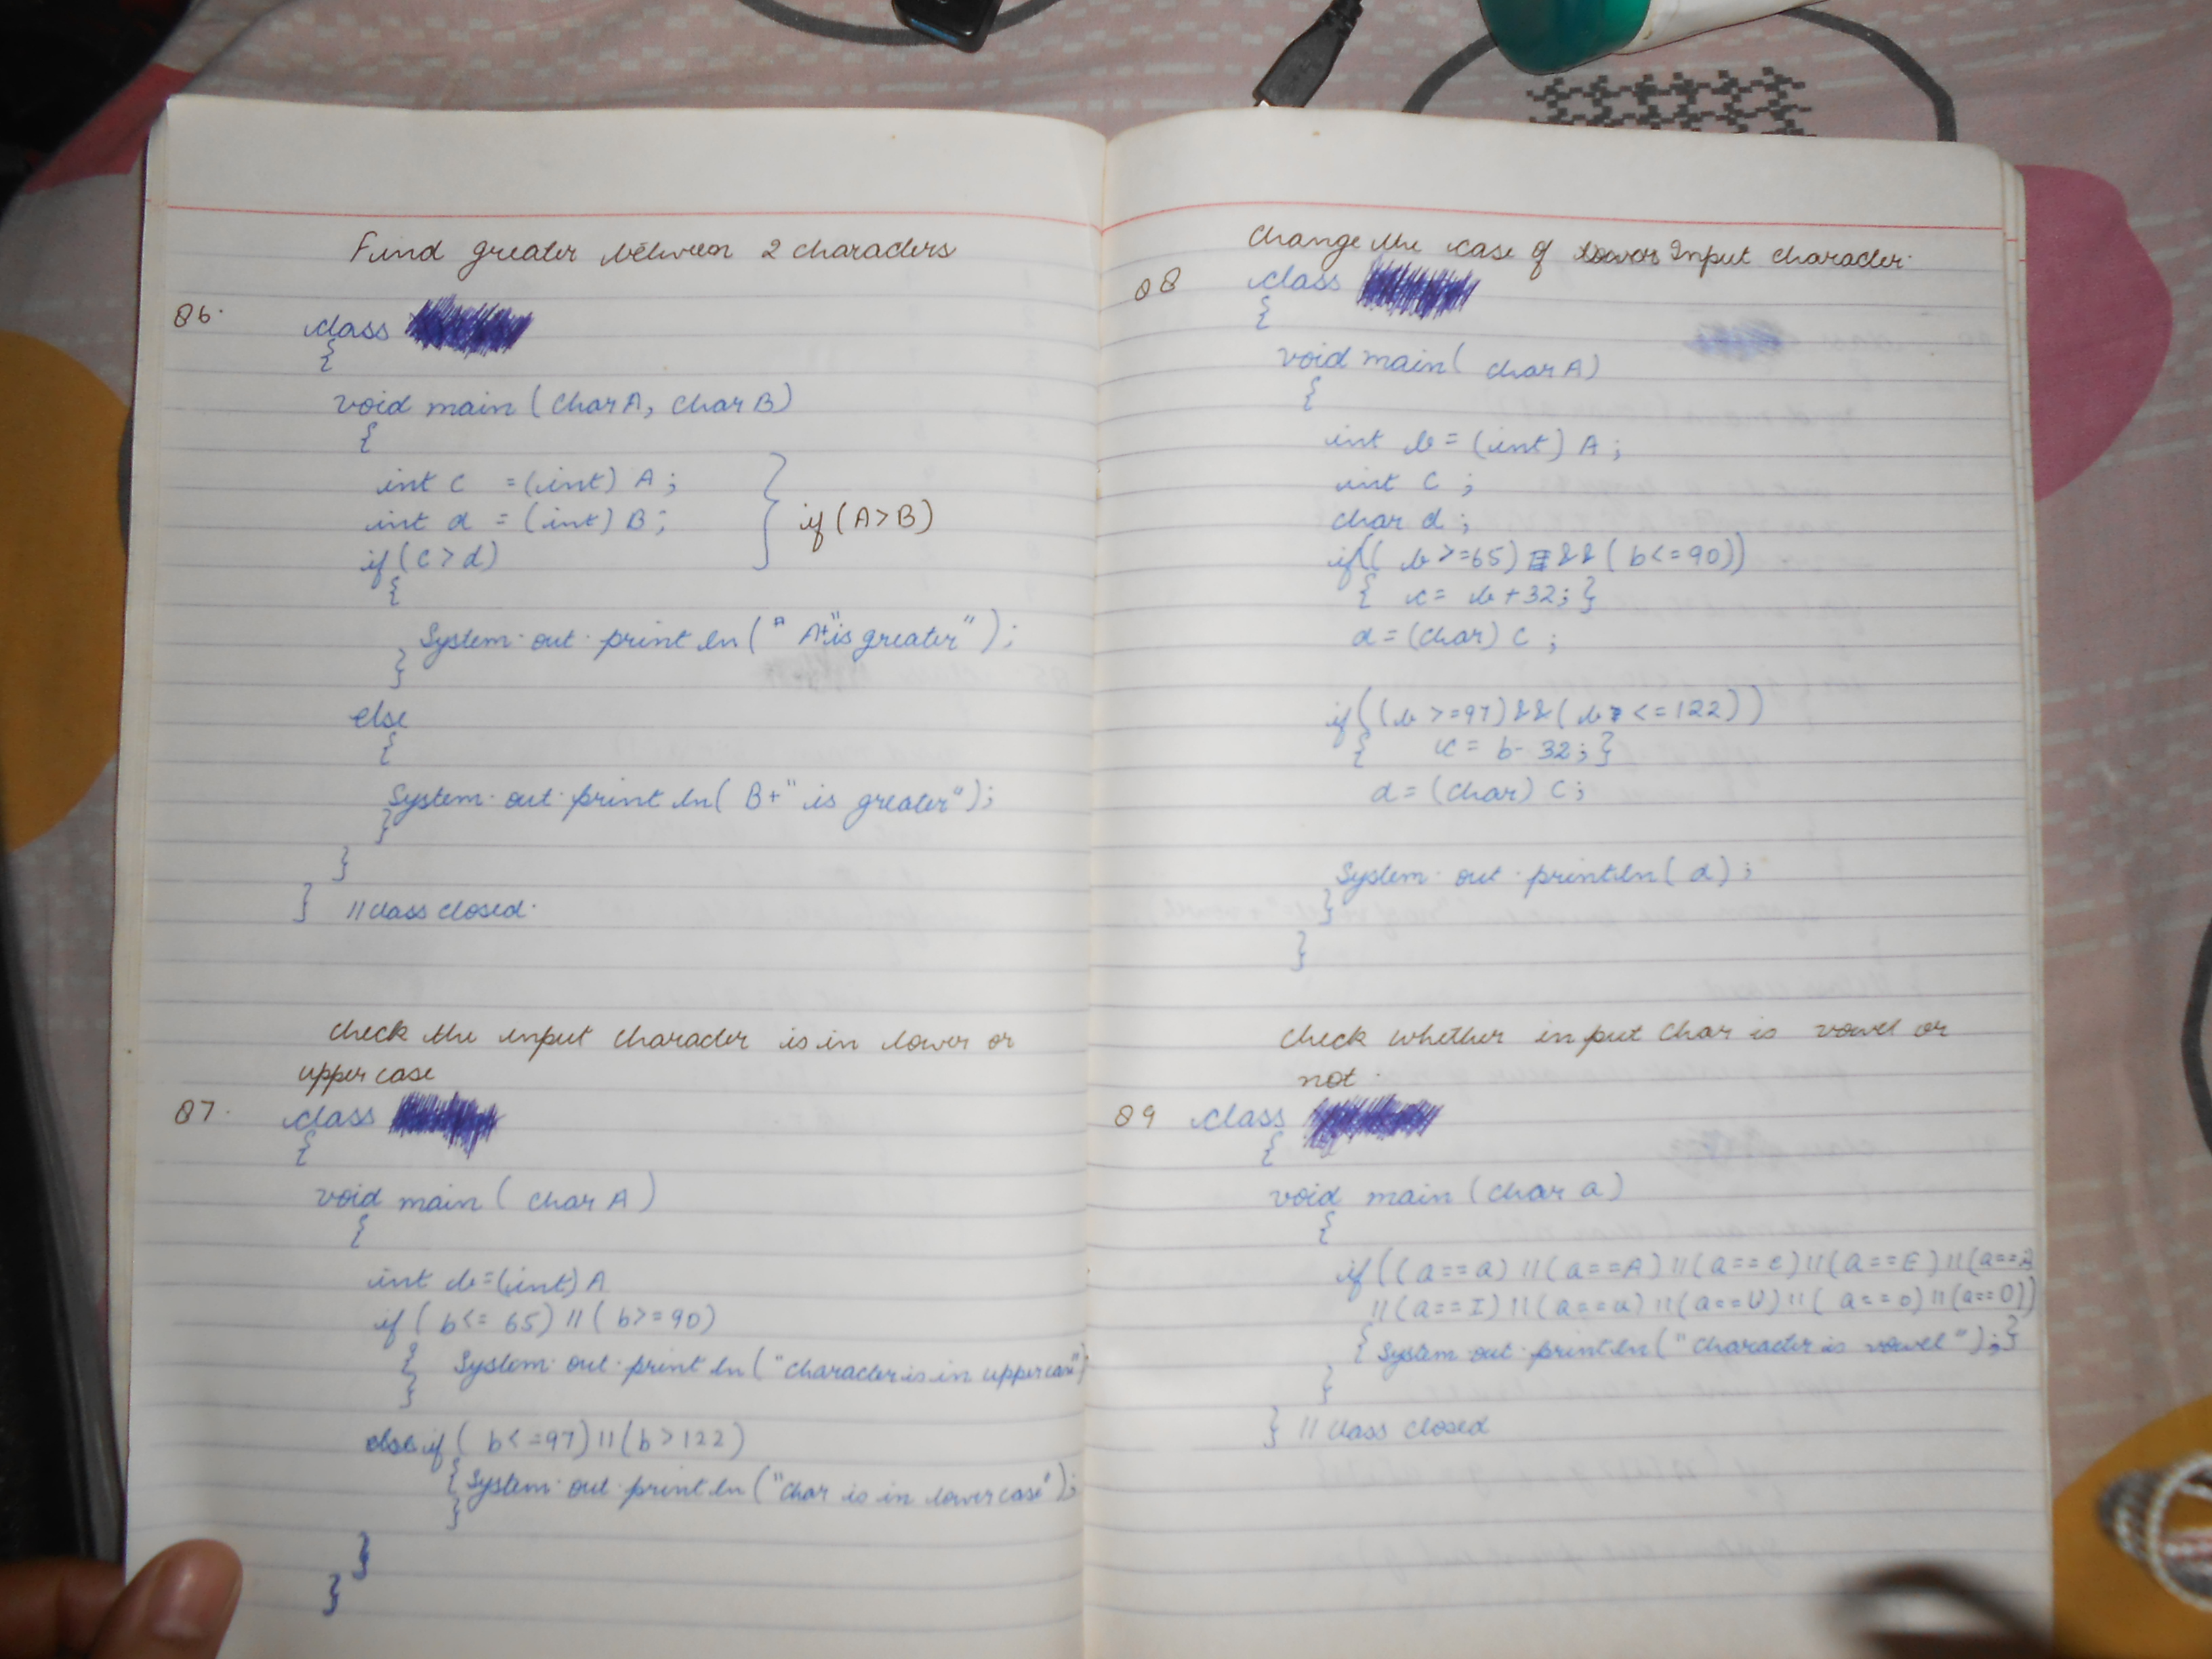 Find greater between 2 characters
Q6.
class
{
void main (char A, char B)
{
int C = (int) A ;
int d = (int) B ;
if (C > d)
} if (A > B)
{
System.out.println(" A+"is greater" );
}
else
{
System.out.println( B+" is greater");
}
}
} //class closed.
check the input character is in lower or
upper case
Q7.
class
{
void main ( char A )
{
int b = (int) A
if ( b <= 65) || ( b >= 90)
{ System.out.println ("character is in upper case")
}
else if ( b <= 97) || (b > 122 )
{ System.out.println ("char is in lower case");
}
}
}
change the case of Input character.
Q8
class
{
void main ( char A)
{
int b = (int) A ;
int C ;
char d ;
if(( b >=65) && ( b <= 90))
{ c = b + 32; }
d = (char) C ;
if( (b >=97) && ( b <= 122))
{ c = b - 32; }
d = (char) C ;
System.out.println( d) ;
}
}
check whether input char is vowel or
not.
Q9
class
{
void main (char a)
{
if ( ( a == a) || ( a == A) || ( a == e) || ( a == E) || (a == i
|| ( a == I ) || ( a == u) || ( a == U) || ( a == o) || (a == O))
{ System.out.println ("character is vowel" ); }
}
} // class closed